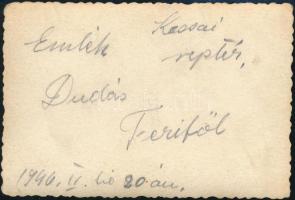 Emlék Kassai
reptér,
Dudás
Feritől
1940. II. hó 20-án.